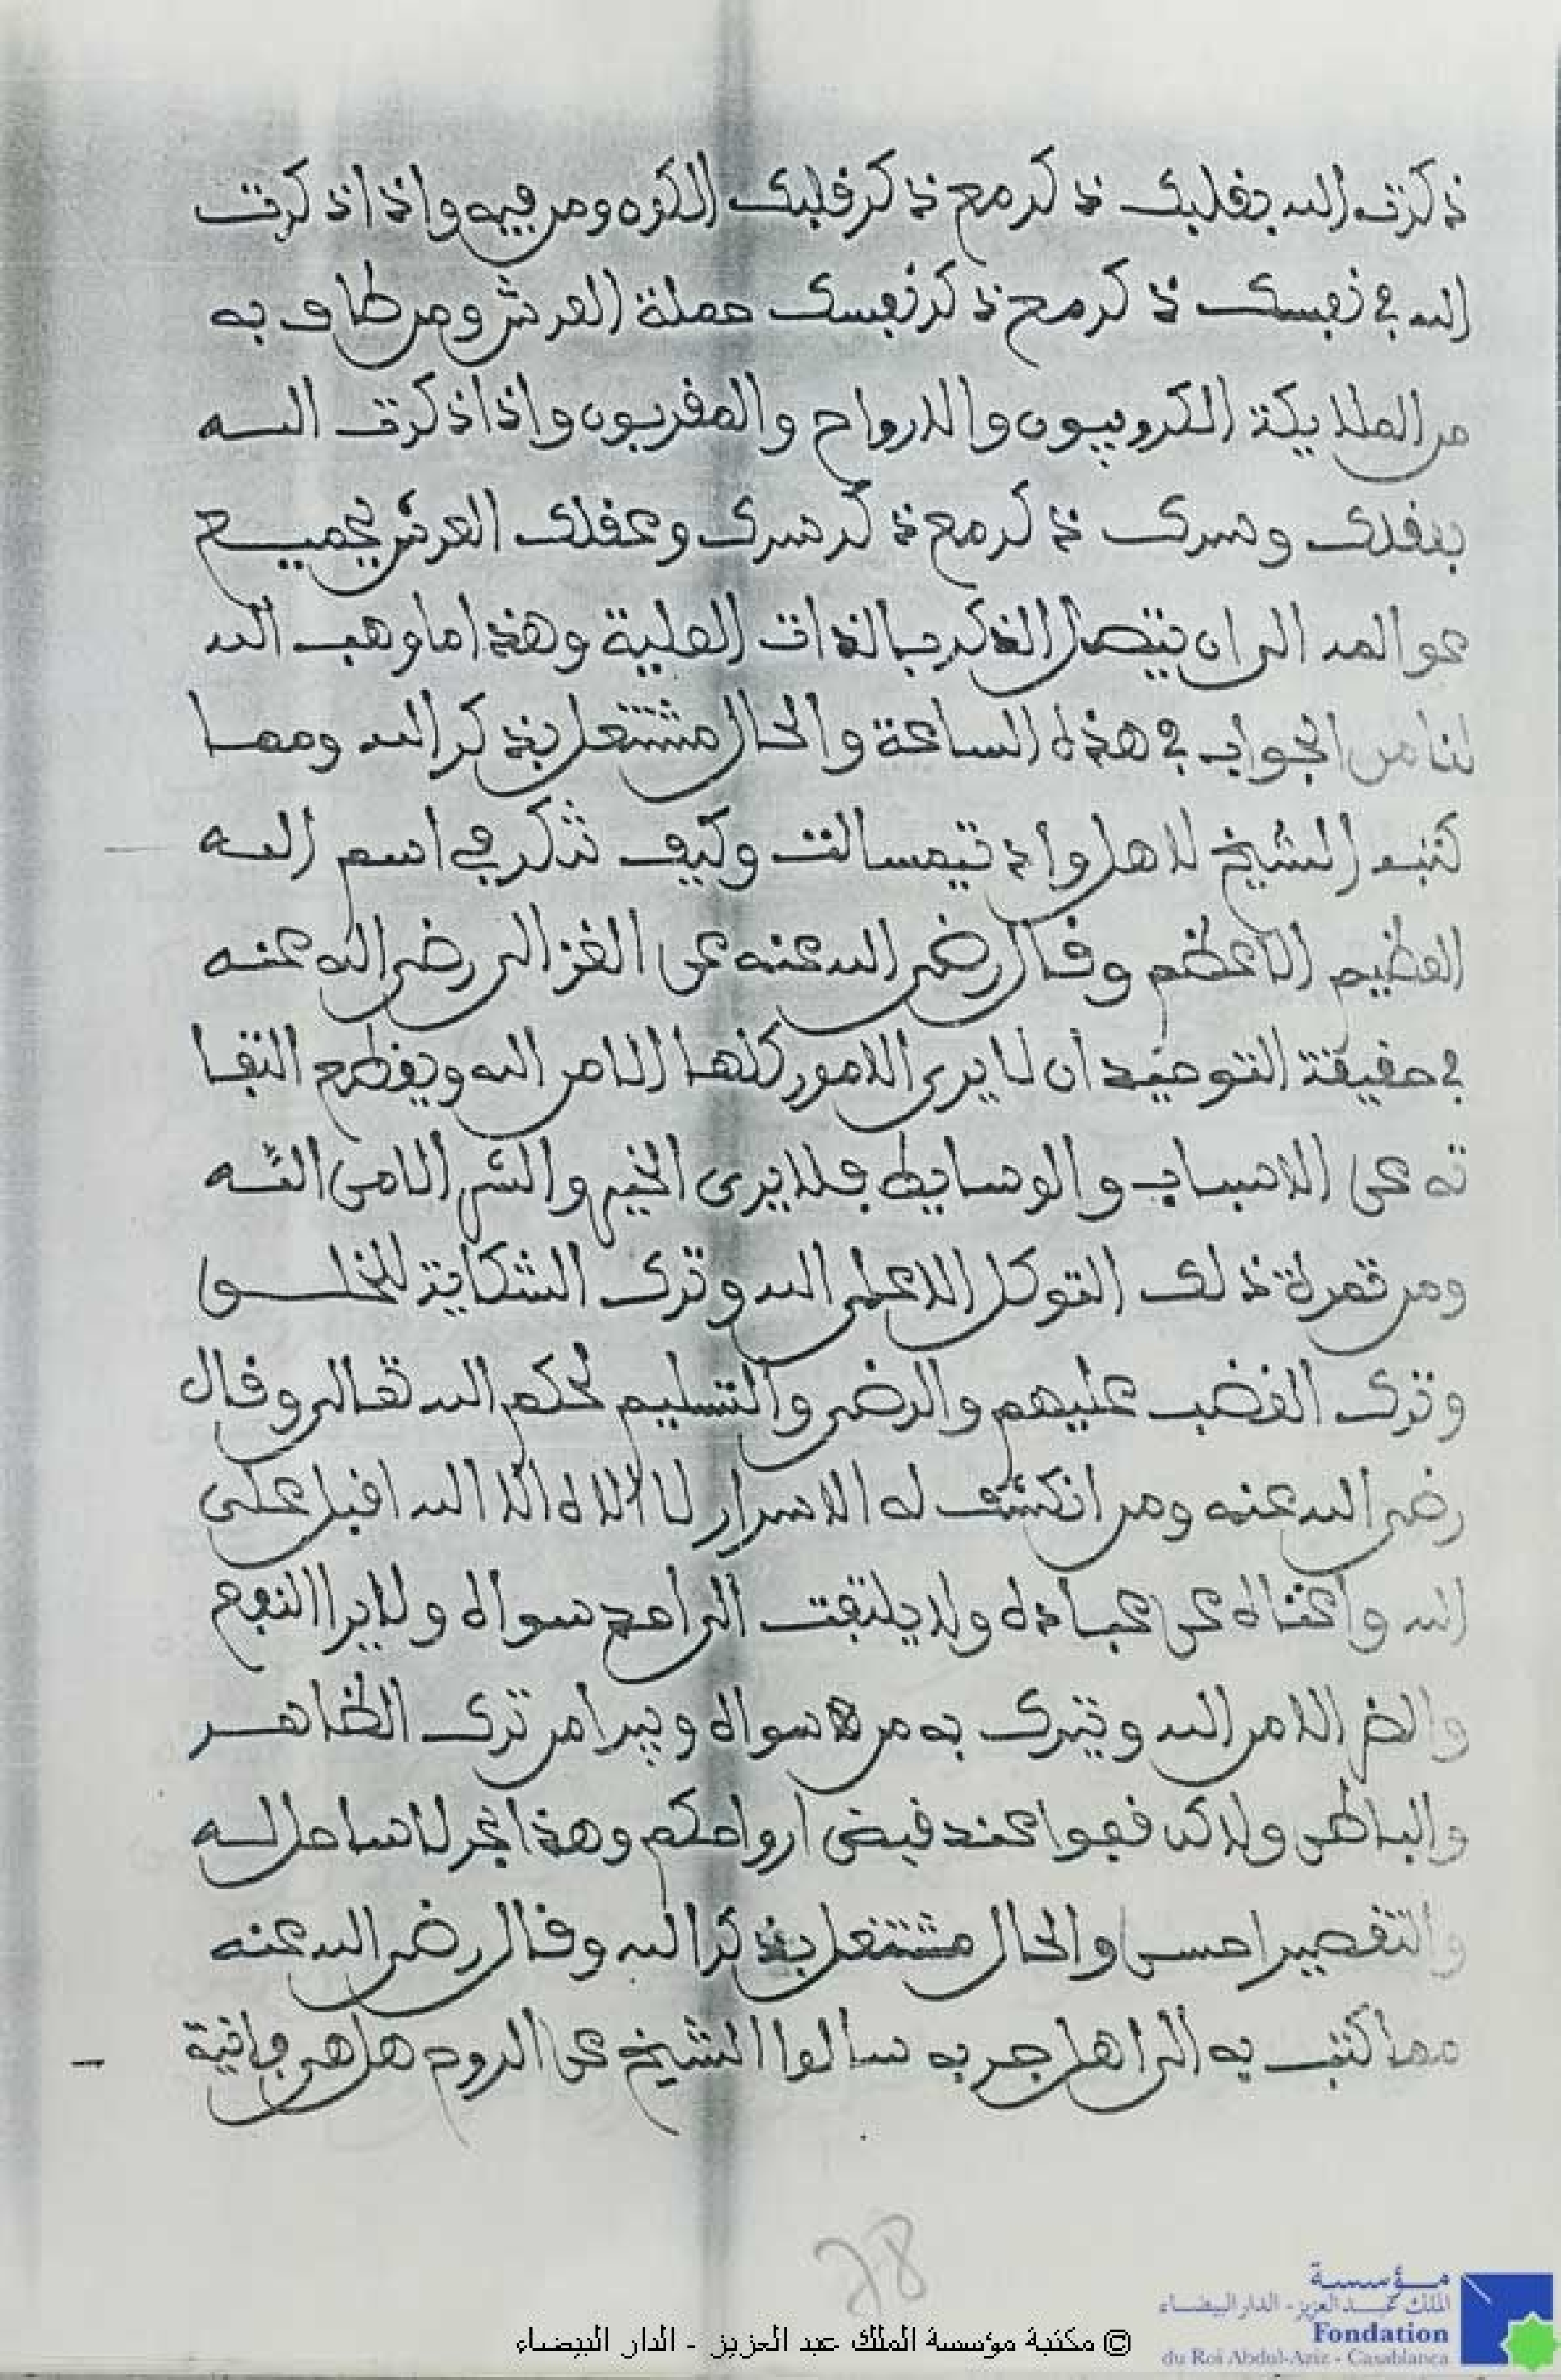 ذكرت الله بقلبك ذكر مع ذكر قلبك الكون ومن فيه واذا ذكرت
الله في نفسك ذكر مع ذكر نفسك حملة العرش ومن طاف به
من الملايكة الكروبيون والارواح والمقربون واذا ذكرت الله
بعقلك وسرك ذكر مع ذكر سرك وعقلك العرش بجميع
عوالمه الى ان يتصل الذكر بالذات العلية وهذا ما وهب الله
لنا من الجواب في هذه الساعة والحال مشتغل بذكر الله ومما
كتب الشيخ لاهل واد تيمسالت وكيف تذكر في اسم الله
العظيم الاعظم وقال رضي الله عنه عن الغزالي رضي الله عنه
في حقيقة التوحيد ان لا يرى الامور كلها الا من الله ويقطع التفا
ته عن الاسباب والوسايط فلا يرى الخير والشر الا من الله
ومن ثمرة ذلك التوكل الا على الله وترك الشكاية للخلق
وترك الغضب عليهم والرضى والتسليم لحكم الله تعالى وقال
رضي الله عنه ومن انكشف له الاسرار لا الاه الا الله اقبل على
الله واغناه عن عباده ولا يلتفت الى احد سواه ولا يرا النفع
والضر الا من الله ويترك به من سواه ويبرا من ترك الظاهر
والباطن ولا كن قفوا عند قبض ارواحكم وهذا بحر لا ساحل له
والتقصير احسن والحال مشتغل بذكر الله وقال رضي الله عنه
مما كتب به الى اهل جربه سالوا الشيخ عن الروح هل هي فانية
78
© مكتبة مؤسسة الملك عبد العزيز - الدار البيضاء
مؤسسة
الملك عبد العزيز - الدار البيضاء
Fondation
du Roi Abdul-Aziz - Casablanca